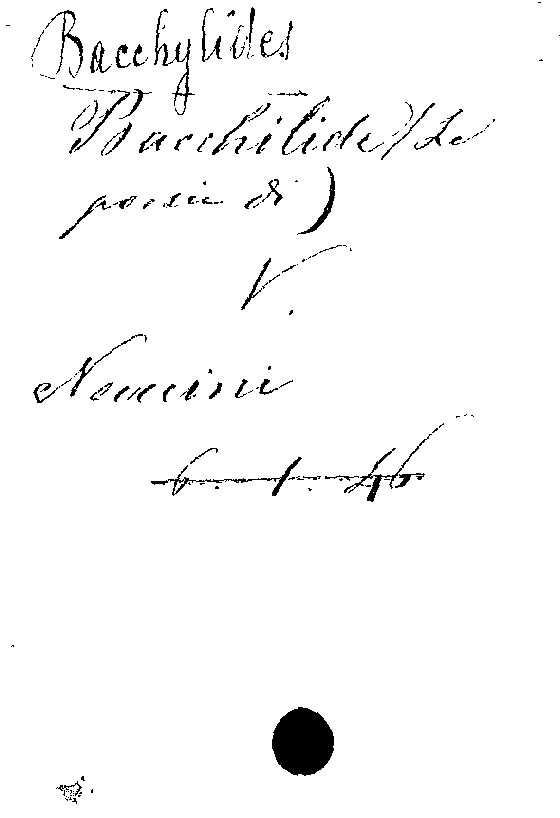 Bacchylides
Bacchilide (Le
poesie di)
V.
Nencini
6. 1. 46